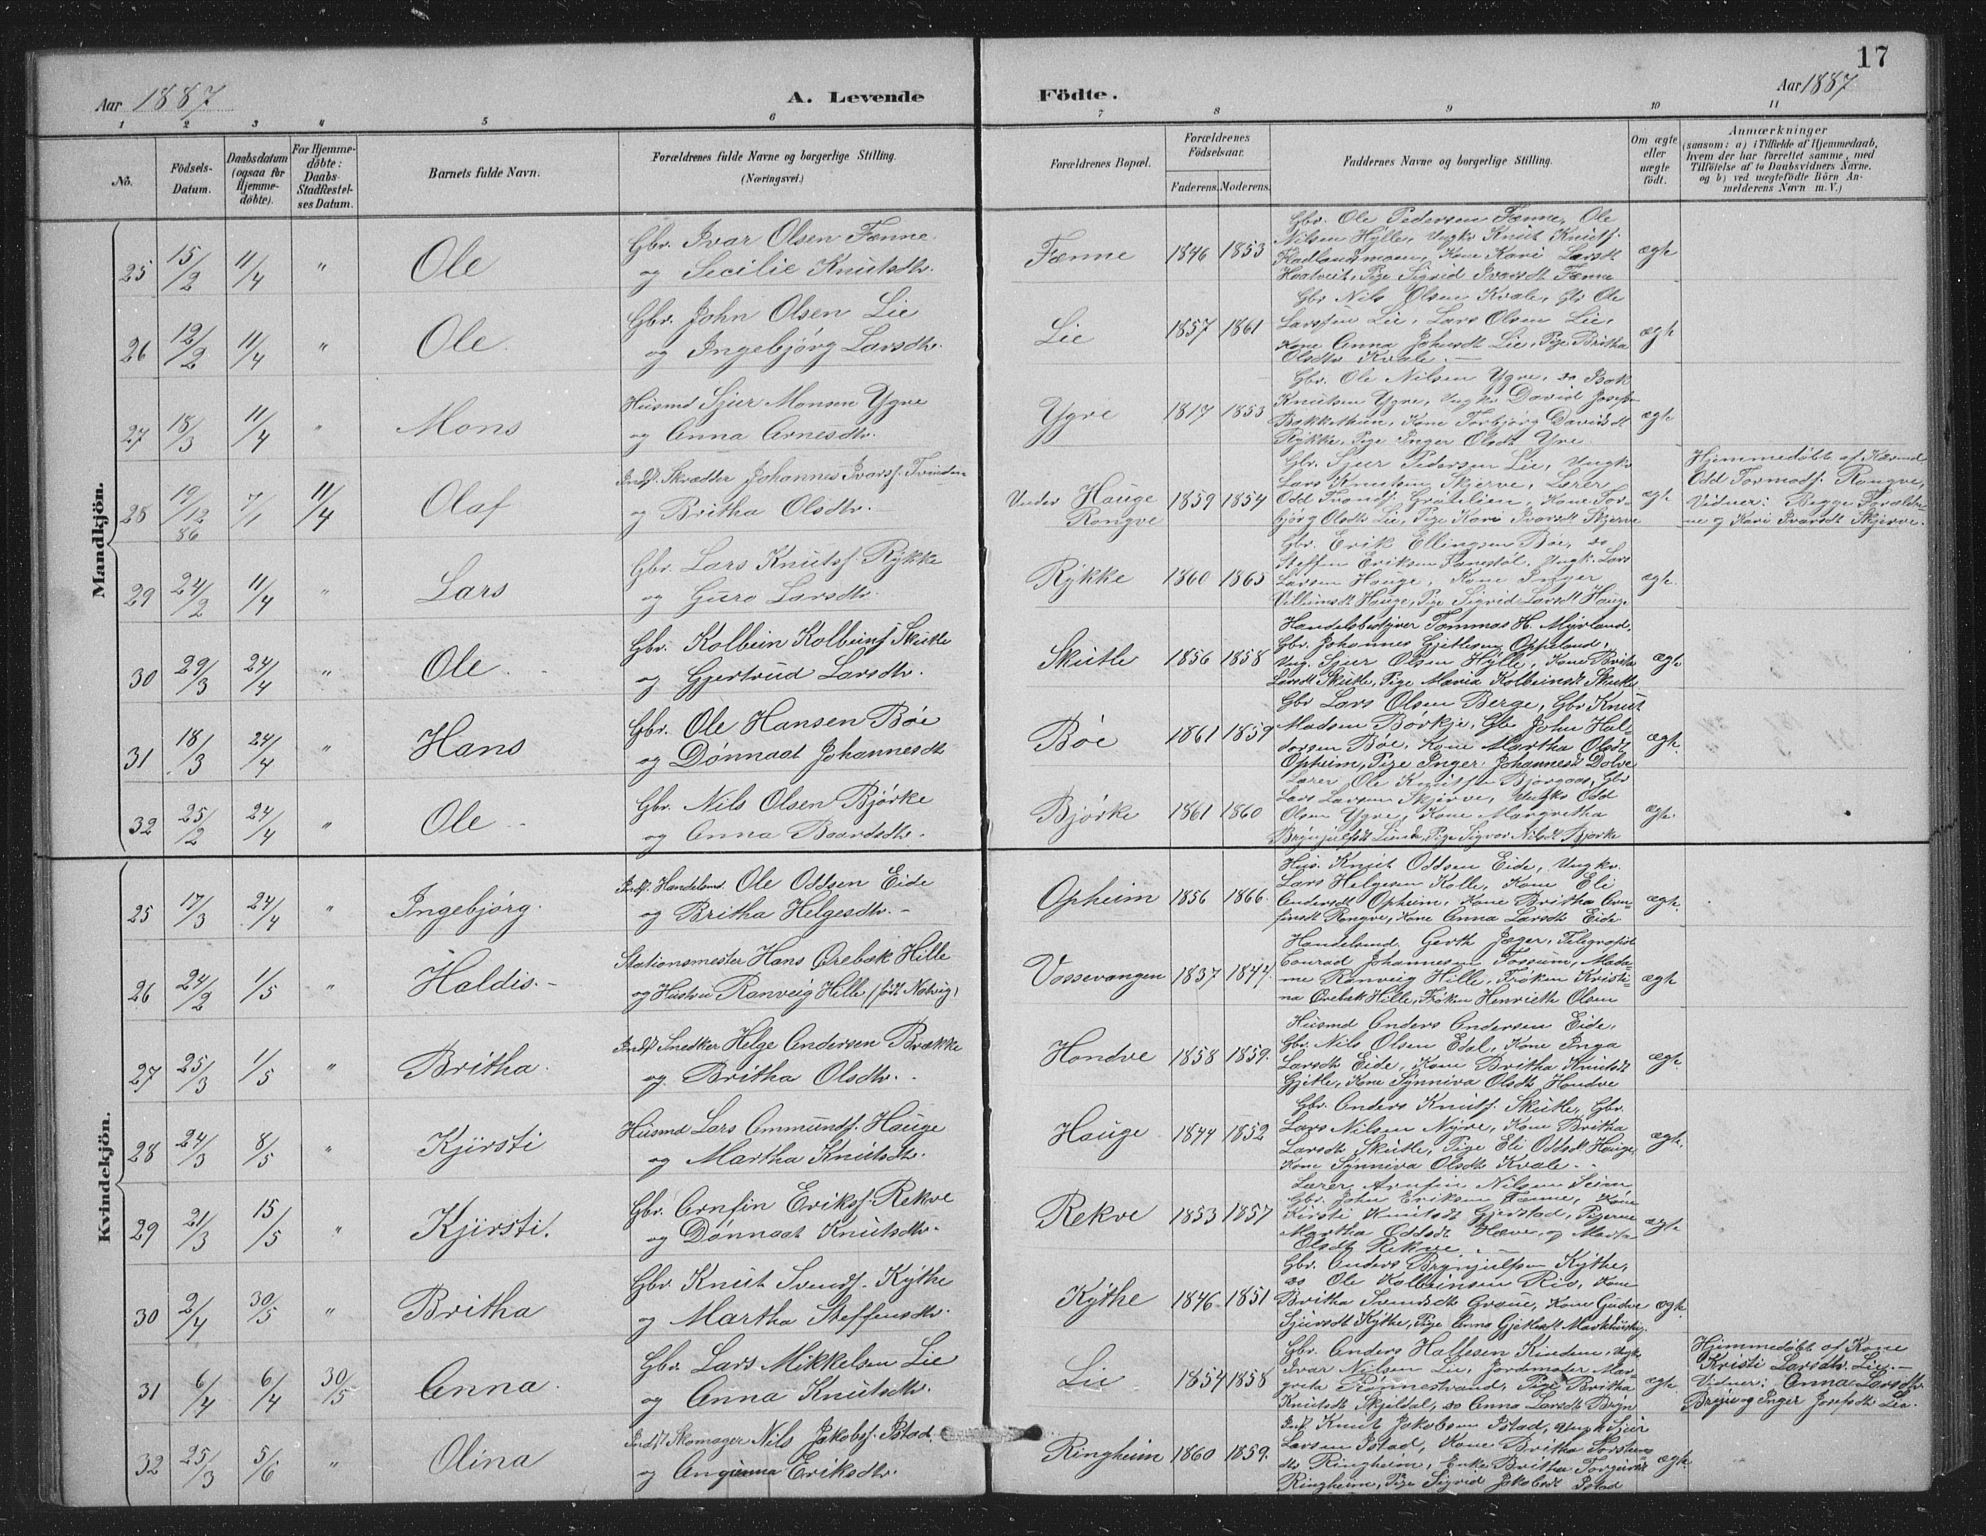 17
Aar 1887
A. Levende Fødte.
Aar 1887
1 2 3 4 5 6 7 8 9 10 11
No.
Födsels-Datum.
Daabsdatum (ogsaa for Hjemmedöbte).
For Hjemmedöbte: Daabs-Stadfæstelses Datum.
Barnets fulde Navn.
Forældrenes fulde Navne og borgerlige Stilling. (Næringsvei.)
Forældrenes Bopæl.
Forældrenes Födselsaar.
Faderens. Moderens.
Faddernes Navne og borgerlige Stilling.
Om ægte eller uægte födt.
Anmærkninger
(saasom: a) i Tilfælde af Hjemmedaab,
hvem der har forrettet samme, med
Tilföielse af to Daabsvidners Navne.
og b) ved uægtefödte Börn An-
melderens Navn m. V.)
Mandkjön.
25 15/2 11/4 " Ole
Gbr. Ivar Olsen Fænne
og Secilie Knutsdtr.
Fænne 1846 1853
Gbr. Ole Pedersen Fænne, Ole
Nilsen Hylle, Ungk. Knut Knuts.
Kone Kari Larsdt
Pige Sigrid Ivarsdt Fænne
ægte
26 12/2 11/4 " Ole.
Gbr. John Olsen Lie
og Ingebjørg Larsdtr.
Lie 1857 1861
Gbr Nils Olsen Kvale, Gbr Ole
Larssen Lie, Lars Olsen Lie,
Kone Anna Johnsdt Lie, Pige Britha
Olsdtr Kvale. —
ægte
27 18/3 11/4 " Mons
Husmd Sjur Monsen Ygre
og Anna Arnesdtr.
Ygre 1817 1853
Gbr. Ole Nilsen Ygre, so Bak
Knutsen Ygre, Ungk. David Josefs.
Bakkethun, Kone Torbjørg Davidsdt
Rykke, Pige Inger Olsdt Yre
ægte
28 19/12 86 7/1 11/4 Olaf
Inds. Skrædder Johannes Ivarss. Tvinden
og Britha Olsdtr.
Under Hauge Rongve 1859 1854
Gbr. Sjur Pedersen Lie, Ungk.
Lars Knutsen Skjerve, Lærer
Odd Tronds. Grønlien, Kone Tor-
bjørg Olsdtr Lie, Pige Kari Ivarsdt Skjerve
ægte
Hjemmedøbt af Husmd
Odd Tormods. Rongve,
Vidner: Begge Foreldre-
ne og Kari Ivarsdt Skjerve.
29 24/2 11/4 " Lars
Gbr. Lars Knuts. Rykke
og Guro Larsdtr.
Rykke 1860 1865
Gbr. Erik Ellingsen Bøe, so
Steffen Eriksen Fænestøl, Ungk. Lars
Larsen Hauge, Kone Inger
Villumsdt Hauge, Pige Sigrid Larsdt Hauge
ægte.
30 29/3 24/4 " Ole
Gbr. Kolbein Kolbeins. Skutle
og Gjertrud Larsdtr.
Skutle 1856 1858
Handelsbestyrer Tommas H. Myrland,
Gbr. Johannes Gjetlesen Oppeland,
Ung. Sjur Olsen Hylle, Kone Brita
Larsdt Skutle, Pige Maria Kolbeinsdt Skutle
ægte
31 18/3 24/4 " Hans
Gbr. Ole Hansen Bøe
og Dønnaat Johannesdt
Bøe 1861 1859
Gbr Lars Olsen Berge, Gbr Knut
Madsen Børkje, Gbr John Hal-
dorsen Bøe, Kone Martha Olsdt
Opheim, Pige Inger Johannesdt Dolve
ægte.
32 25/2 24/4 " Ole
Gbr. Nils Olsen Bjørke
og Anna Baardsdtr.
Bjørke 1861 1860
Lærer Ole Knutsen Bjørgaas, Gbr
Lars Larsen Skjerve, Ungk Odd
Olsen Ygre, Kone Margretha
Brynjulfsdt Linde, Pige Sigvor Nilsdt Bjørke
ægte.
Kvindekjön.
25 17/3 24/4 " Ingebjørg.
Inds. Handelsmd. Ole Oddsen Eide
og Britha Helgesdtr.
Opheim 1856 1866.
Hus. Knut Oddsen Eide, Ungkr.
Lars Helgesen Kolle, Kone Eli
Andersdt Opheim, Kone Britha Arn-
finsdt Rongve, Kone Anna Larsdt Eide
ægte.
26 24/2 1/5 " Haldis.
Stationsmester Hans Ørebæk Hille
og Hustru Ranveig Hille (født Natvig)
Vossevangen 1837 1844.
Handelsmd. Gerth Jæger, Telegrafist
Conrad Johannesen Fossum, Mada-
me Ranveig Hille, Frøken Kristi-
na Ørebæk Hille, Frøken Henriette Olsen
ægte
27 25/3 1/5 " Britha.
Inds. Snedker Helge Andersen Brække
og Britha Olsdtr.
Hondve 1858 1859.
Husmd Anders Andersen Eide,
Gbr. Nils Olsen Edal, Kone Inga
Larsdt Eide, Kone Britha Knutsdt
Gjetle, Kone Synniva Olsdt Hondve
ægte
28 24/3 8/5 " Kjirsti
Husmd Lars Ammunds. Hauge
og Martha Knutsdtr.
Hauge 1844 1852
Gbr. Anders Knuts. Skutle, Gbr.
Lars Nilsen Nyre, Kone Britha
Larsdt Skutle, Pige Eli Oddsdt Hauge,
Kone Synniva Olsdt Kvale.
ægte.
29 21/3 15/5 " Kjirsti.
Gbr. Arnfin Eriks. Rekve
og Dønnaat Knutsdtr.
Rekve 1853 1857
Lærer Arnfin Nilsen Seim
Gbr. John Eriksen Fænne, Kone
Kirsti Knutsdt Gjerstad, Pigerne
Martha Oddsdt og Marta
Olsdt Rekve.
ægte
30 2/4 30/5 " Britha
Gbr. Knut Svends. Kythe
og Martha Steffensdtr.
Kythe 1846 1851
Gbr. Anders Brynjulfsen Kythe,
so Ole Kolbeinsen Rio, Kone
Britha Svendsdt Graue, Kone Gudve
Sjursdt Kythe, Pige Anna Gjetlesdt
ægte.
31 6/4 6/4 30/5 Anna.
Gbr Lars Mikkelsen Lie
og Anna Knutsdtr.
Lie 1854 1858
Gbr. Anders Hallesen Kinden, Ungk
Ivar Nilsen Lie, Jordmoder Mar-
greta Rønnestrand, Pige Britha
Knutsdt Skjeldal, so Anna Larsdt Bryn
ægte.
Hjemmedøbt af Kone
Kristi Larsdtr. Lie. —
Vidner: Anna Larsdtr
Bryn og Inger Josefsdt Lie.
32 25/3 5/6 " Olina
Inds. Skomager Nils Jakobs. Istad
og Angunna Eriksdtr.
Ringheim 1860 1859.
Inds. Knut Jakobsen Istad, Ungk Sjur
Larsen Istad, Kone Britha Torsteins-
dtr Ringheim, Enke Britha Torgeirsdt
Ringheim, Pige Sigrid Jakobsdt Istad
ægte.